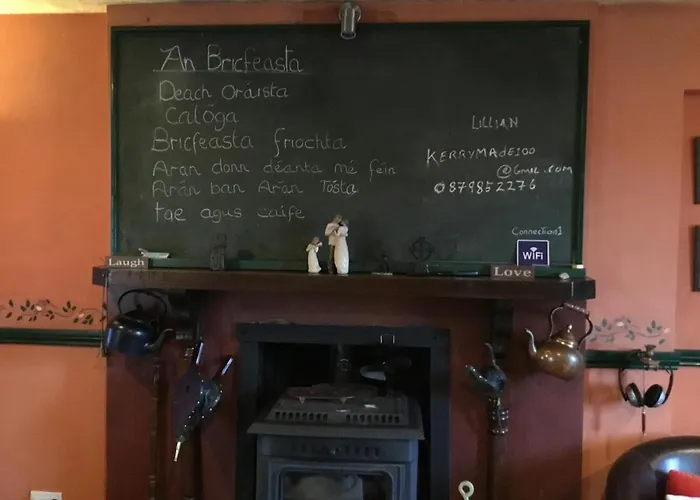 An Bricfeasta
Deach Oráista
Calóga
Bricfeasta friochta
Arán donn déanta mé féin
Arán ban Arán Tósta
tae agus caife
LILLIAN
KERRYMADE100
@GMIL.COM
0879852276
Connection1
WiFi
Laugh
Love